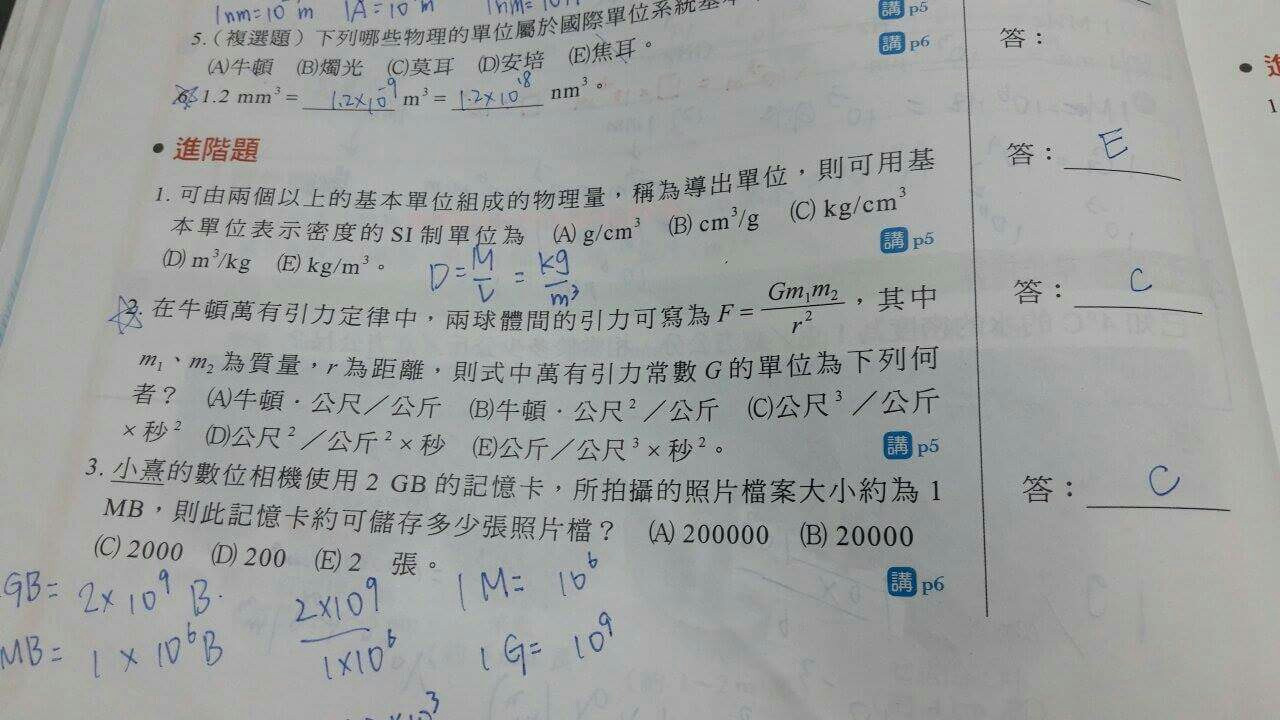 1nm=10 m 1A=10 m
5.(複選題)下列哪些物理的單位屬於國際單位系統基本
講 p5
(A)牛頓 (B)燭光 (C)莫耳 (D)安培 (E)焦耳。
講 p6
答:
6. 1.2 mm³ = 1.2×10⁻⁹ m³ = 1.2×10¹⁸ nm³。
• 進階題
答: E
1. 可由兩個以上的基本單位組成的物理量,稱為導出單位,則可用基
本單位表示密度的 SI 制單位為 (A) g/cm³ (B) cm³/g (C) kg/cm³
(D) m³/kg (E) kg/m³。
講 p5
D = M/V = kg/m³
答: C
2. 在牛頓萬有引力定律中,兩球體間的引力可寫為 F = Gm₁m₂/r²,其中
m₁、m₂ 為質量,r 為距離,則式中萬有引力常數 G 的單位為下列何
者? (A)牛頓.公尺/公斤 (B)牛頓.公尺²/公斤 (C)公尺³/公斤
×秒² (D)公尺²/公斤²×秒 (E)公斤/公尺³×秒²。
講 p5
3. 小熹的數位相機使用 2 GB 的記憶卡,所拍攝的照片檔案大小約為 1
答: C
MB,則此記憶卡約可儲存多少張照片檔? (A) 200000 (B) 20000
(C) 2000 (D) 200 (E) 2 張。
講 p6
GB = 2×10⁹ B. 2×10⁹/1×10⁶ 1M = 10⁶
MB = 1×10⁶B 1G = 10⁹